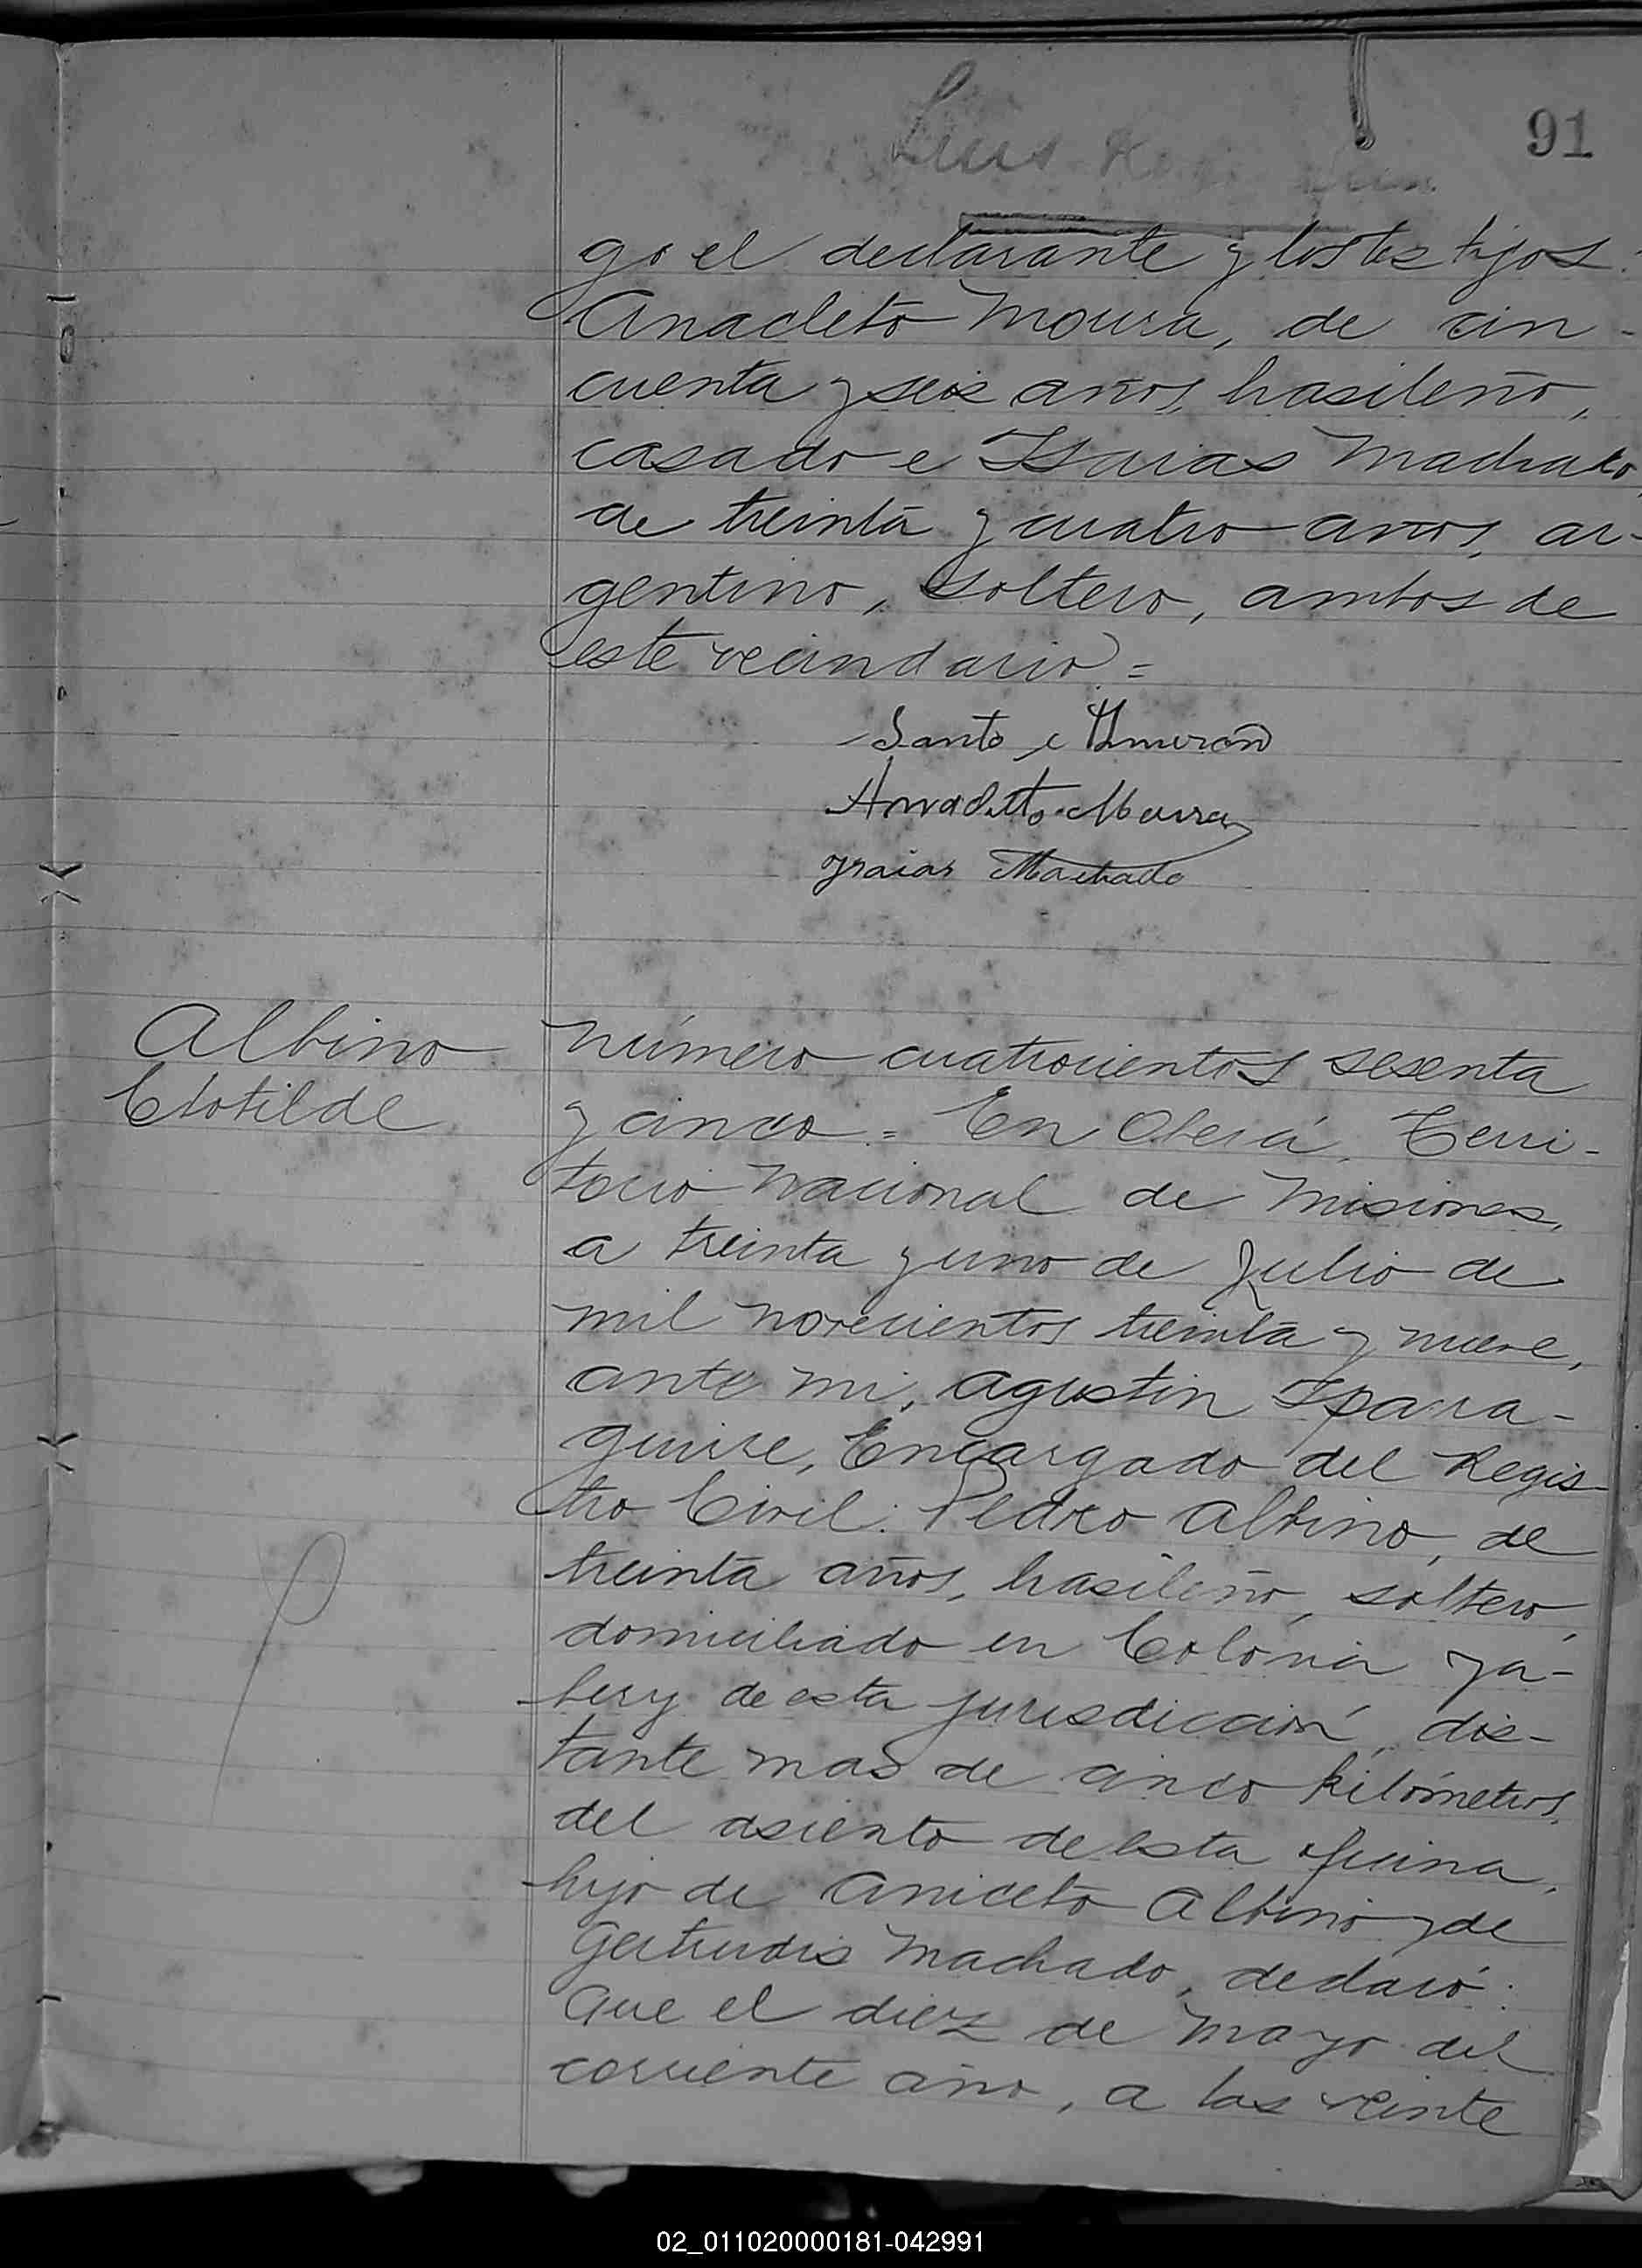 91
Luis
go el declarante y los testigos:
Anacleto Moura, de cin-
cuenta y seis años, brasileño,
casado e Isaias Machado,
de treinta y cuatro años, ar-
gentino, soltero, ambos de
este vecindario =
Santo
Anacleto Moura
Isaias Machado
Albino
Clotilde
Número cuatrocientos sesenta
y cinco = En Oberá, Terri-
torio Nacional de Misiones,
a treinta y uno de Julio de
mil novecientos treinta y nueve,
ante mi, Agustin Iparra-
guirre, Encargado del Regis-
tro Civil: Pedro Albino, de
treinta años, brasileño, soltero,
domiciliado en Colonia Ya-
bery de esta jurisdicción, dis-
tante mas de cinco kilómetros,
del asiento de esta oficina,
hijo de Aniceto Albino y de
Gertrudis Machado, declaró:
Que el diez de Mayo del
corriente año, a las veinte
02_011020000181-042991